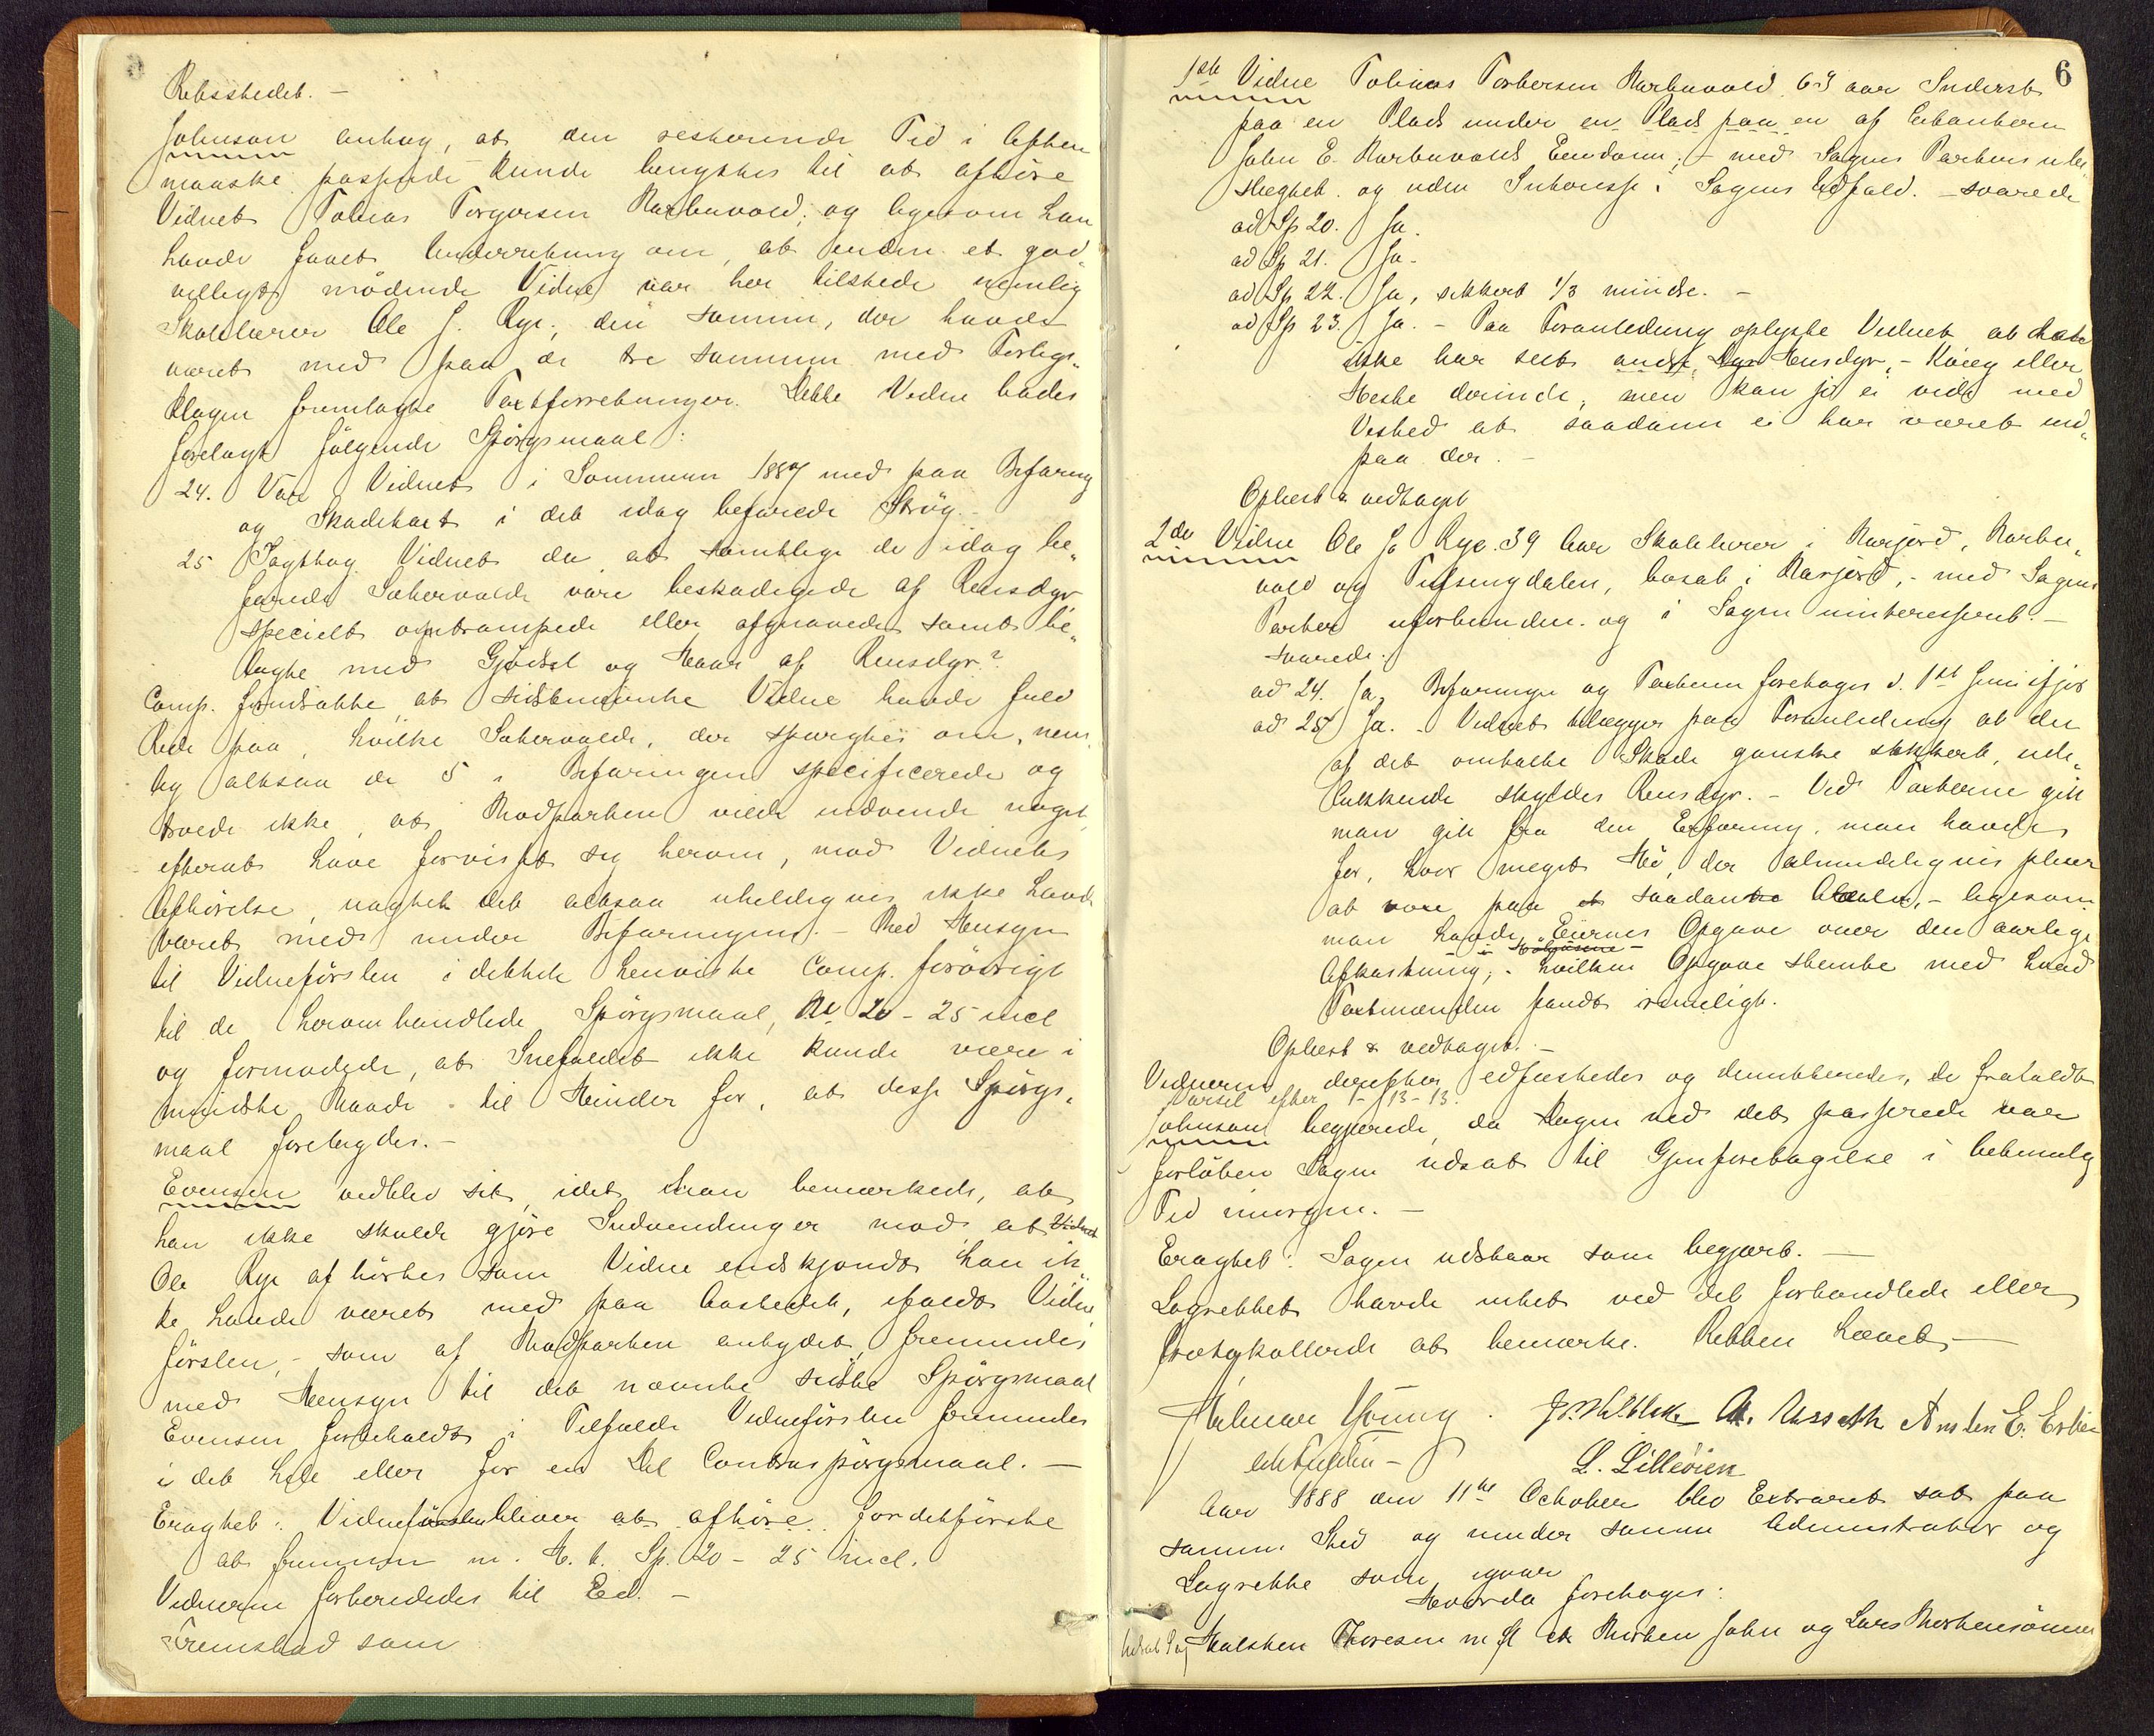 Retsstedet. —
Johnson antog, at den resterende Tid i Aften
maaske passende kunde benyttes til at afhøre
Vidnet Tobias Torgersen Narbuvold; og ligesom han
havde faaet Underretning om, at endnu et god„
villigt mødende Vidne var her tilstede nemlig
Skolelærer Ole J. Rye; den samme, der havde
været med paa de tre sammen med Forligs„
klagen fremlagte Taxtforretninger. Dette Vidne bades
forelagt følgende Spørgsmaal:
24. Var Vidnet i Sommeren 1887 med paa Befaring
og Skadetaxt i det idag befarede Strøg. —
25 Iagttog Vidnet da at samtlige de idag be„
farede Sætervolde vare beskadigede af Rensdyr
specielt optrampede eller afgnavede samt be„
lagte med Gjødsel og Haar af Rensdyr?
Comp. forudsatte at sidstnævnte Vidne havde fuld
Rede paa, hvilke Sætervolde, der spurgtes om, nem„
lig altsaa de 5 i Befaringen specificerede og
troede ikke, at Modparten vilde indvende noget,
efterat have forvisset sig herom, mod Vidnets
Afhørelse, uagtet det altsaa uheldigvis ikke havde
været med under Befaringen. — Med Hensyn
til Vidneførslen i dethele henviste Comp. forøvrigt
til de heromhandlede Spørgsmaal, No 20 - 25 incl
og formodede, at Snefaldet ikke kunde være i
mindste Maade til Hinder for, at disse Spørgs„
maal forelagdes. —
Evensen vedblev sit, idet han bemærkede, at
han ikke skulde gjøre Indvendinger mod at Vidnet
Ole Rye afhørtes som Vidne endskjøndt han ik
ke havde været med paa Aastedet, ifald Vidne„
førslen, - som af Modparten antydet, fremmedes
med Hensyn til det nævnte sidste Spørgsmaal
Evensen forbeholdt i Tilfælde Vidneførslen fremmedes
i det hele eller for en Del Contraspørgsmaal. —
Eragtet: Vidneførslen bliver at afhøre fordetførste
at fremme m. H. t. Sp. 20 - 25 incl.
Vidnerne forberededes til Ed. —
Fremstod som
6
1ste Vidne Tobias Torgersen Narbuvold 63 aar Inderst
paa en Plads under en Plads paa en af Citanten
John E. Narbuvolds Eiendom; - med Sagens Parter ube„
slægtet og uden Interesse i Sagens Udfald. - svarede
ad Sp 20. Ja.
ad Sp 21. Ja.
ad Sp 22. Ja, sikkert 1/3 mindre. —
ad Sp 23. Ja. - Paa Foranledning oplyste Vidnet at det
ikke har seet andre Dyr Rensdyr, - Kveg eller
Heste derinde, men kan jo ei vide med
Vished at saadanne ei har været ind„
paa der. —
Oplæst & vedtaget
2det Vidne Ole J. Rye. 39 Aar Skolelærer i Narjord, Narbu„
vold og Tufsingdalen, bosat i Narjord, - med Sagens
Parter uforbunden og i Sagen uinteresseret. —
svarede:
ad 24. Ja, Befaringen og Taxterne foretoges d. 1ste Juni ifjor
ad 25 Ja. - Vidnet tillægger paa Foranledning at den
af det omtalte Skade ganske sikkert, ude„
lukkende skyldes Rensdyr. - Ved Taxterne gik
man gik fra den Erfaring, man havde
for, hvor meget Hø, der almindeligvis pleier
at voxe paa et saadant Areal, - ligesom
man havde Eiernes Opgave over den aarlige
Afkastning; - hvilken Opgave stemte med hvad
Taxtmændene fandt rimeligt.
Oplæst & vedtaget. —
Vidnerne derefter edfæstedes og dimitteredes, de frafaldt
Varsel efter 1 - 13 - 13.
Johnson begjærede, da Dagen ved det passerede var
forløben Sagen udsat til Gjenforetagelse i betimelig
Tid imorgen. —
Eragtet: Sagen udstaar som begjært. —
Lagrettet havde intet ved det forhandlede eller
protokollerede at bemærke. Retten hævet —
Halmar Young.
L. Lilleøien
Aar 1888 den 11te October blev Extraret sat paa
samme Sted og under samme Administrator og
Lagrette som igaar
Hvorda foretoges:
Udsat Sag Halsten Thoresen m fl ctr Morten John og Lars Mortensønner